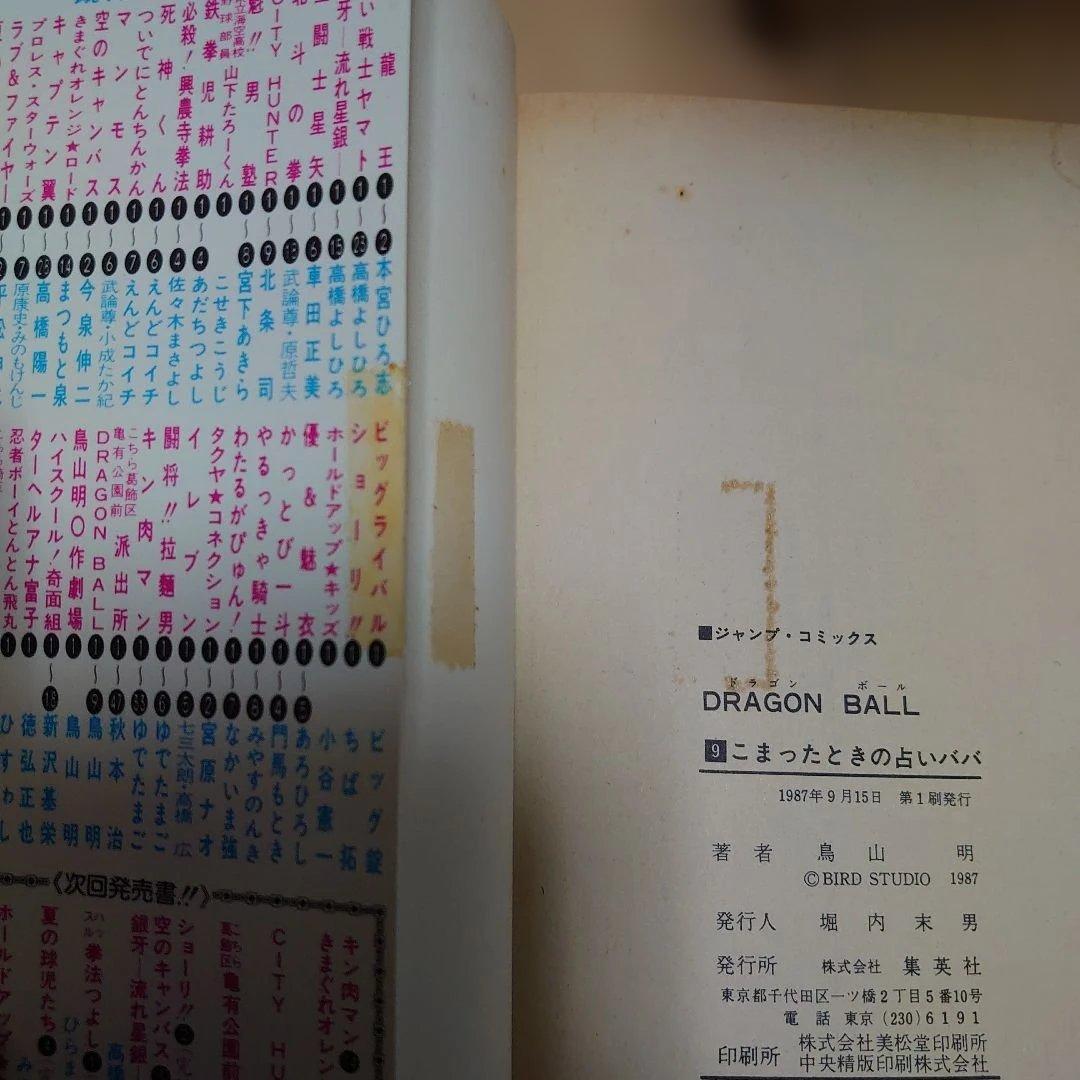 龍王❶〜❷本宮ひろ志
い戦士ヤマト❶〜㉕高橋よしひろ
牙―流れ星銀―❶〜⓯高橋よしひろ
闘士星矢❶〜❻車田正美
北斗の拳❶〜⓭武論尊・原哲夫
CITY HUNTER❶〜❾北条司
魁!!男塾❶〜❽宮下あきら
県立海空高校野球部員山下たろーくん❶こせきこうじ
鉄拳児耕助❶〜❹あだちつよし
必殺!興農寺拳法❶〜❹佐々木まさよし
死神くん❶〜❻えんどコイチ
ついでにとんちんかん❶〜❼えんどコイチ
マンモス❶〜❻武論尊・小成たか紀
空のキャンバス❶〜❷今泉伸二
きまぐれオレンジ★ロード❶〜⓮まつもと泉
キャプテン翼❶〜㉕高橋陽一
プロレス・スターウォーズ❶〜❼原康史・みのもけんじ
ラブ&ファイヤー❶〜❷平松伸二
ビッグライバル❶ビッグ錠
ショーリ!!❶ちば拓
ホールドアップ★キッズ❶小谷憲一
優&魅衣❶〜❺あろひろし
かっとび一斗❶〜❹門馬もとき
やるっきゃ騎士❶〜❽みやすのんき
わたるがぴゅん!❶〜❼なかいま強
タクヤ★コネクション❶〜❷宮原ナオ
イレブン❶〜❺七三太朗・高橋広
闘将!!拉麺男❶〜❻ゆでたまご
キン肉マン❶〜㉝ゆでたまご
こちら葛飾区亀有公園前派出所❶〜㊼秋本治
DRAGON BALL❶〜❾鳥山明
鳥山明〇作劇場❶鳥山明
ハイスクール!奇面組❶〜⓳新沢基栄
ターヘルアナ富子❶徳弘正也
忍者ボーイとんとん飛丸❶ひすわし
《次回発売書!!》
キン肉マン
きまぐれオレン
CITY HU
こちら葛飾区亀有公園前
ショーリ!!❷
空のキャンバス
銀牙―流れ星銀―
ハッスル拳法つよし❶
夏の球児たち
ホールドアップ
■ジャンプ・コミックス
ドラゴン ボール
DRAGON BALL
9 こまったときの占いババ
1987年9月15日 第1刷発行
著者 鳥山明
©BIRD STUDIO 1987
発行人 堀内末男
発行所 株式会社 集英社
東京都千代田区一ツ橋2丁目5番10号
電話 東京(230)6191
印刷所 株式会社美松堂印刷所
中央精版印刷株式会社